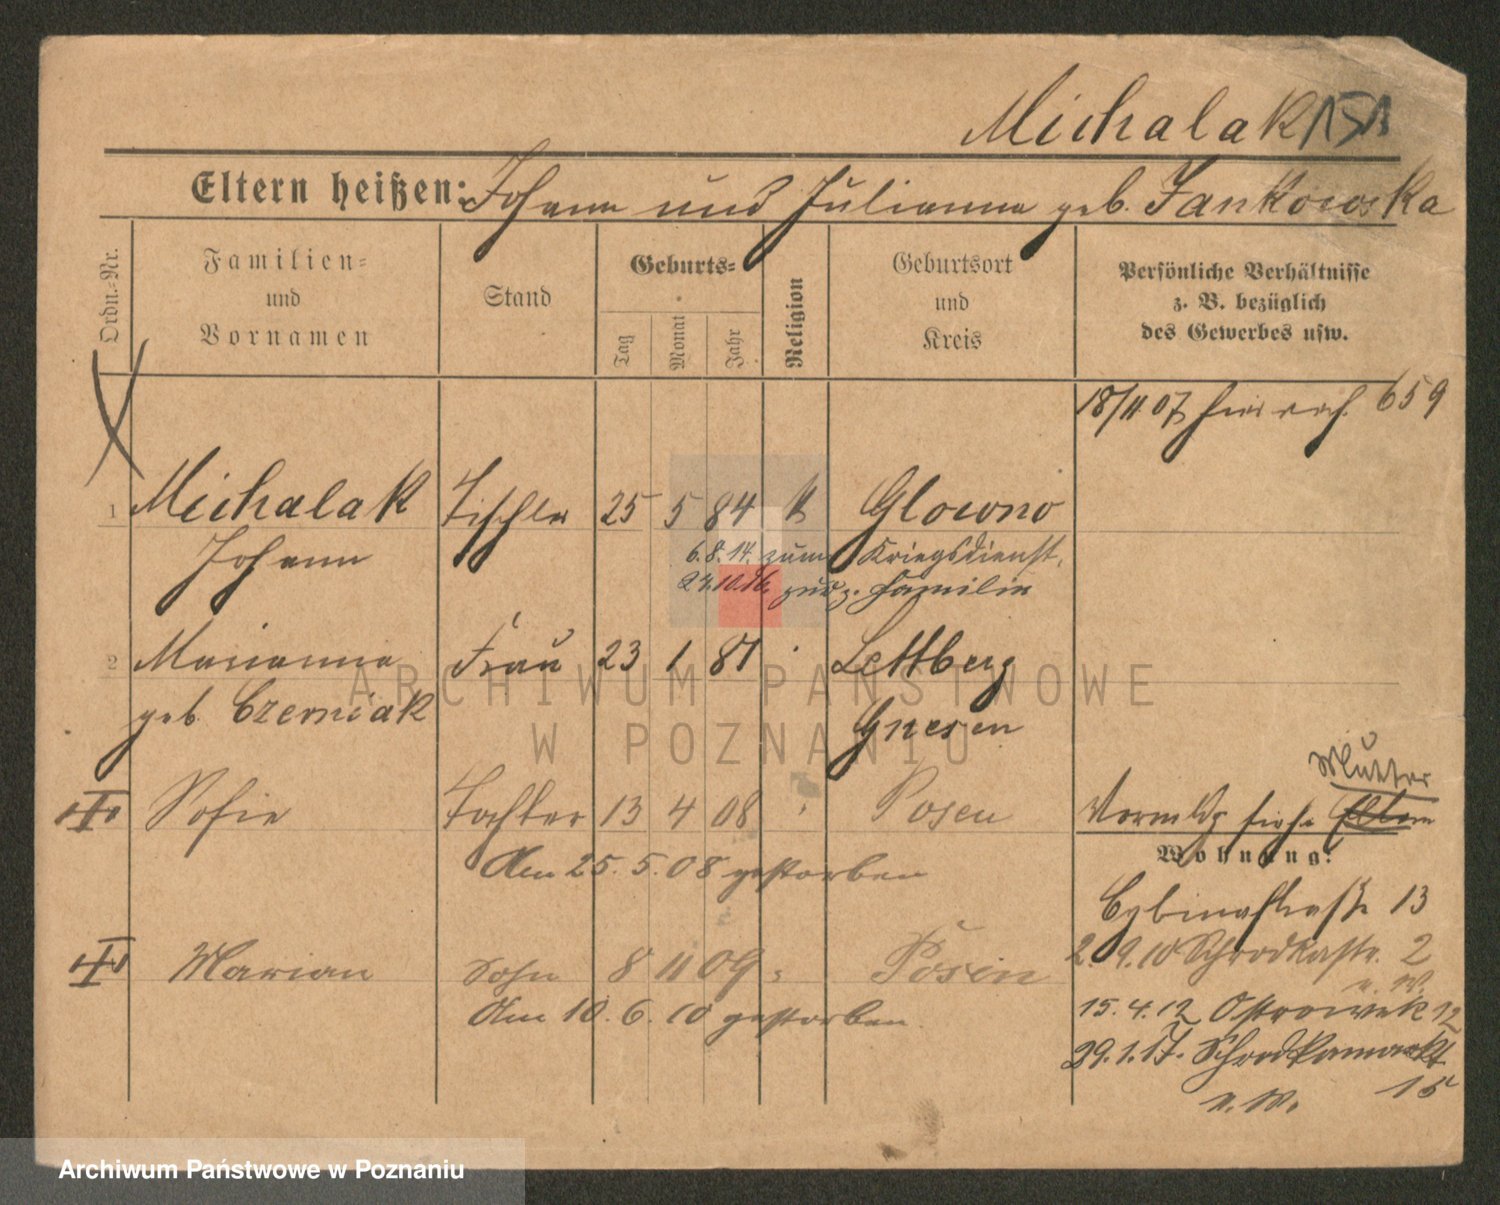 Michalak 151
Eltern heißen: Johann und Julianna geb. Jankowska
Ordn.-Nr.
Familien-
und
Vornamen
Stand
Geburts-
Tag
Monat
Jahr
Religion
Geburtsort
und
Kreis
Persönliche Verhältnisse
z. B. bezüglich
des Gewerbes usw.
18/11 07 659
1 Michalak Tischler 25 5 84 k Glowno
Johann
6.8.14. zum Kriegsdienst.
zur Familie
2 Marianna Frau 23 1 81 Lettberg
geb. Czerniak Gnesen
Sofie Tochter 13 4 08 Posen
Am 25.5.08 gestorben
Mutter
siehe Eltern
Wohnung:
Cybinastraße 13
Marian Sohn 8 11 09 Posen
Am 10.6.10 gestorben
2.9.10 Schrodkastr. 2
n. W.
15.4.12 Ostrowek 12
29.1.17. Schrodkamarkt
15
n. W.
ARCHIWUM PAŃSTWOWE
W POZNANIU
Archiwum Państwowe w Poznaniu